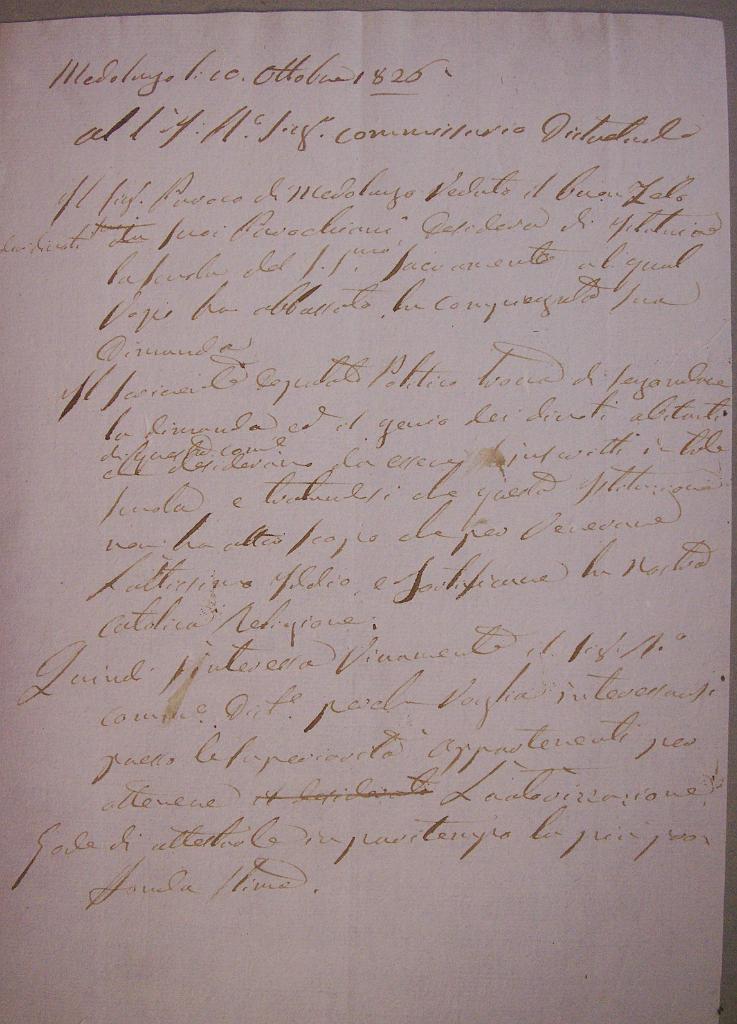 Medolago li 10. Ottobre 1826
al l'I. R.° Sig.r commissario Distretuale
Il Sig. Paroco di Medolago Veduto il buon Zelo
dei divoti suoi Parochiani desidera di istituire
la scuola del S.S.mo Sacramento al qual
Vopo ha abbassato la compiegata sua
Dimanda
Il deputato Politico trova di secondare
la dimanda ed il genio dei divoti abitanti
di questo com.e
che desiderano da essere inscritti in tale
scuola e trattandosi che questa istituzione
non ha altro scopo che per Venerare
L'altissimo Iddio, e Fortificare la nostra
catolica Religione.
Quindi s'interessa Vivamente il Sig. R.°
comm.e Dist.e perche Voglia interessarsi
presso le Superiorità appartenenti per
ottenere il desiderato L'autorizzazione.
Gode di attestarle in pari tempo la più pro
fonda stima.